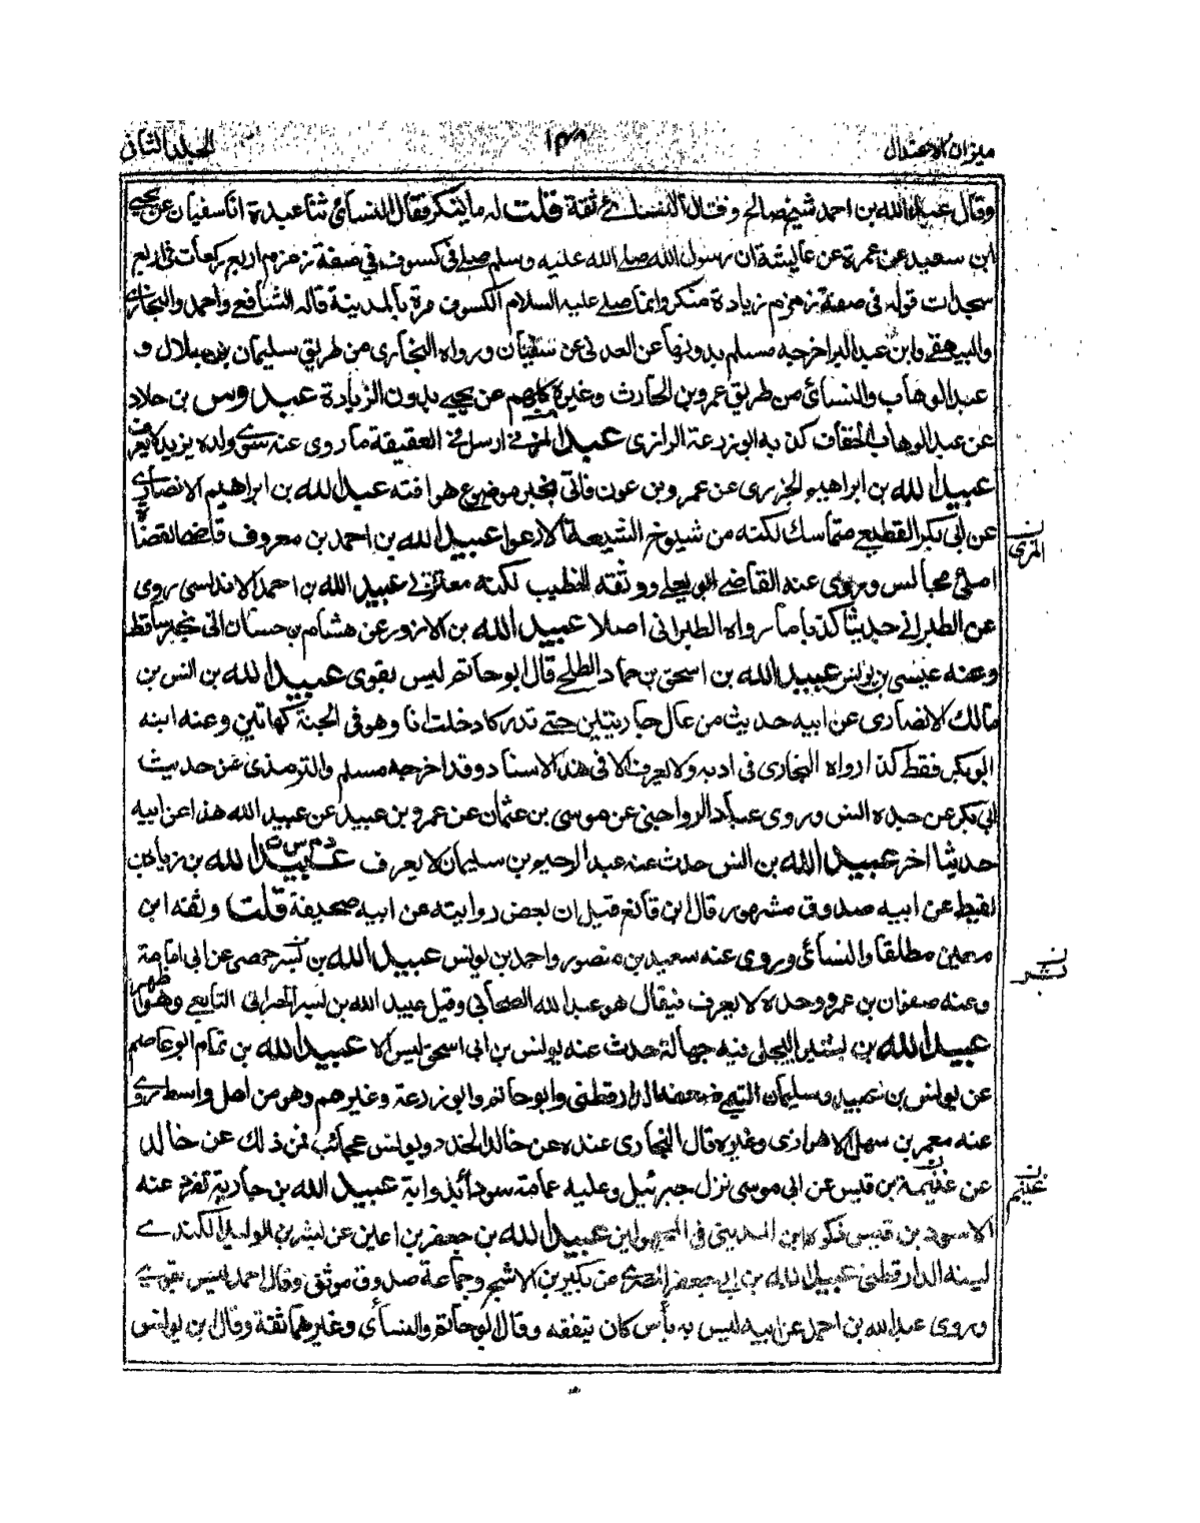 ميزان الاعتدال
١٤٨
الجلد الثاني
وقال عبد الله بن احمد شيخ صالح وقال النسائي ثقة قلت له ما ينكر فقال النسائي ثنا عبدة انا سفيان عن يحيى
ابن سعيد عن عمرة عن عايشة ان رسول الله صلى الله عليه وسلم صلى في كسوف في صفة زمزم اربع ركعات في اربع
سجدات قوله في صفة زمزم زيادة منكر وانما صلى عليه السلام الكسوف مرة بالمدينة قاله الشافعي واحمد والبخاري
والبيهقي وابن عبد البر اخرجه مسلم بدونها عن العدني عن سفيان ورواه البخاري من طريق سليمان بن بلال و
عبد الوهاب والنسائي من طريق عمرو بن الحارث وغيره كلهم عن يحيى بدون الزيادة عبدوس بن خلاد
عن عبد الوهاب الخفاف كذبه ابو زرعة الرازي عبد المزني ارسل في العقيقة ما روى عنه سوى ولده يزيد لا يعرف
عبيد الله بن ابراهيم الجزري عن عمرو بن عون فاتى بخبر موضوع هو افته عبيد الله بن ابراهيم الانصاري
عن ابي بكر القطيعي متماسك لكنه من شيوخ الشيعة لا رعوا عبيد الله بن احمد بن معروف قاضي القضاة
املى مجالس وروى عنه القاضي ابو يعلى ووثقه الخطيب لكنه معتزلي عبيد الله بن احمد الاندلسي روى
عن الطبراني حديثا كذبا ما رواه الطبراني اصلا عبيد الله بن الازور عن هشام بن حسان اتى بخبر ساقط
وعنه عيسى بن يونس عبيد الله بن اسحق بن حماد الطلحي قال ابو حاتم ليس بقوى عبيد الله بن انس بن
مالك الانصاري عن ابيه حديث من عال جاريتين حتى تدركا دخلت انا وهو في الجنة كهاتين وعنه ابنه
ابو بكر فقط كذا رواه البخاري في ادبه ولا يعرف الا في هذا الاسناد وقد اخرجه مسلم والترمذي عن حديث
ابي بكر عن جده انس وروى عباد الرواجني عن موسى بن عثمان عن عمرو بن عبيد عن عبيد الله هذا عن ابيه
حديثا اخر عبيد الله بن انس حدث عنه عبد الرحيم بن سليمان لا يعرف عبيد الله بن زياد بن
لقيط عن ابيه صدوق مشهور قال ابن قانع قيل ان بعض روايته عن ابيه صحيفة قلت وثقه ابن
معين مطلقا والنسائي وروى عنه سعيد بن منصور واحمد بن يونس عبيد الله بن بسر حمصي عن ابي امامة
وعنه صفوان بن عمرو وحده لا يعرف فيقال هو عبد الله الصحابي وقيل عبيد الله بن بسر الحبراني التابعي وهو اظهر
عبيد الله بن بشير البجلي فيه جهالة حدث عنه يونس بن ابي اسحق ليس الا عبيد الله بن تمام ابو عاصم
عن يونس بن عبيد وسليمان التيمي ضعفه الدارقطني وابو حاتم وابو زرعة وغيرهم وهو من اهل واسط روى
عنه معمر بن سهل الاهوازي وغيره قال البخاري عنده عن خالد الحذاء ويونس عجائب فمن ذلك عن خالد
عن غنيمة بن قيس عن ابي موسى نزل جبرئيل وعليه عمامة سوداء بذوابة عبيد الله بن جارية تفرد عنه
الاسود بن قيس ذكره ابن المديني في المجهولين عبيد الله بن جعفر بن اعين عن بشر بن الوليد الكندي
لينه الدارقطني عبيد الله بن ابي جعفر المصري عن بكير بن الاشج وجماعة صدوق موثق وقال احمد ليس بقوى
وروى عبد الله بن احمد عن ابيه ليس به بأس كان يتفقه وقال ابو حاتم والنسائي وغيرهما ثقة وقال ابن يونس
المزني
ن
بشر
ن
غنيم